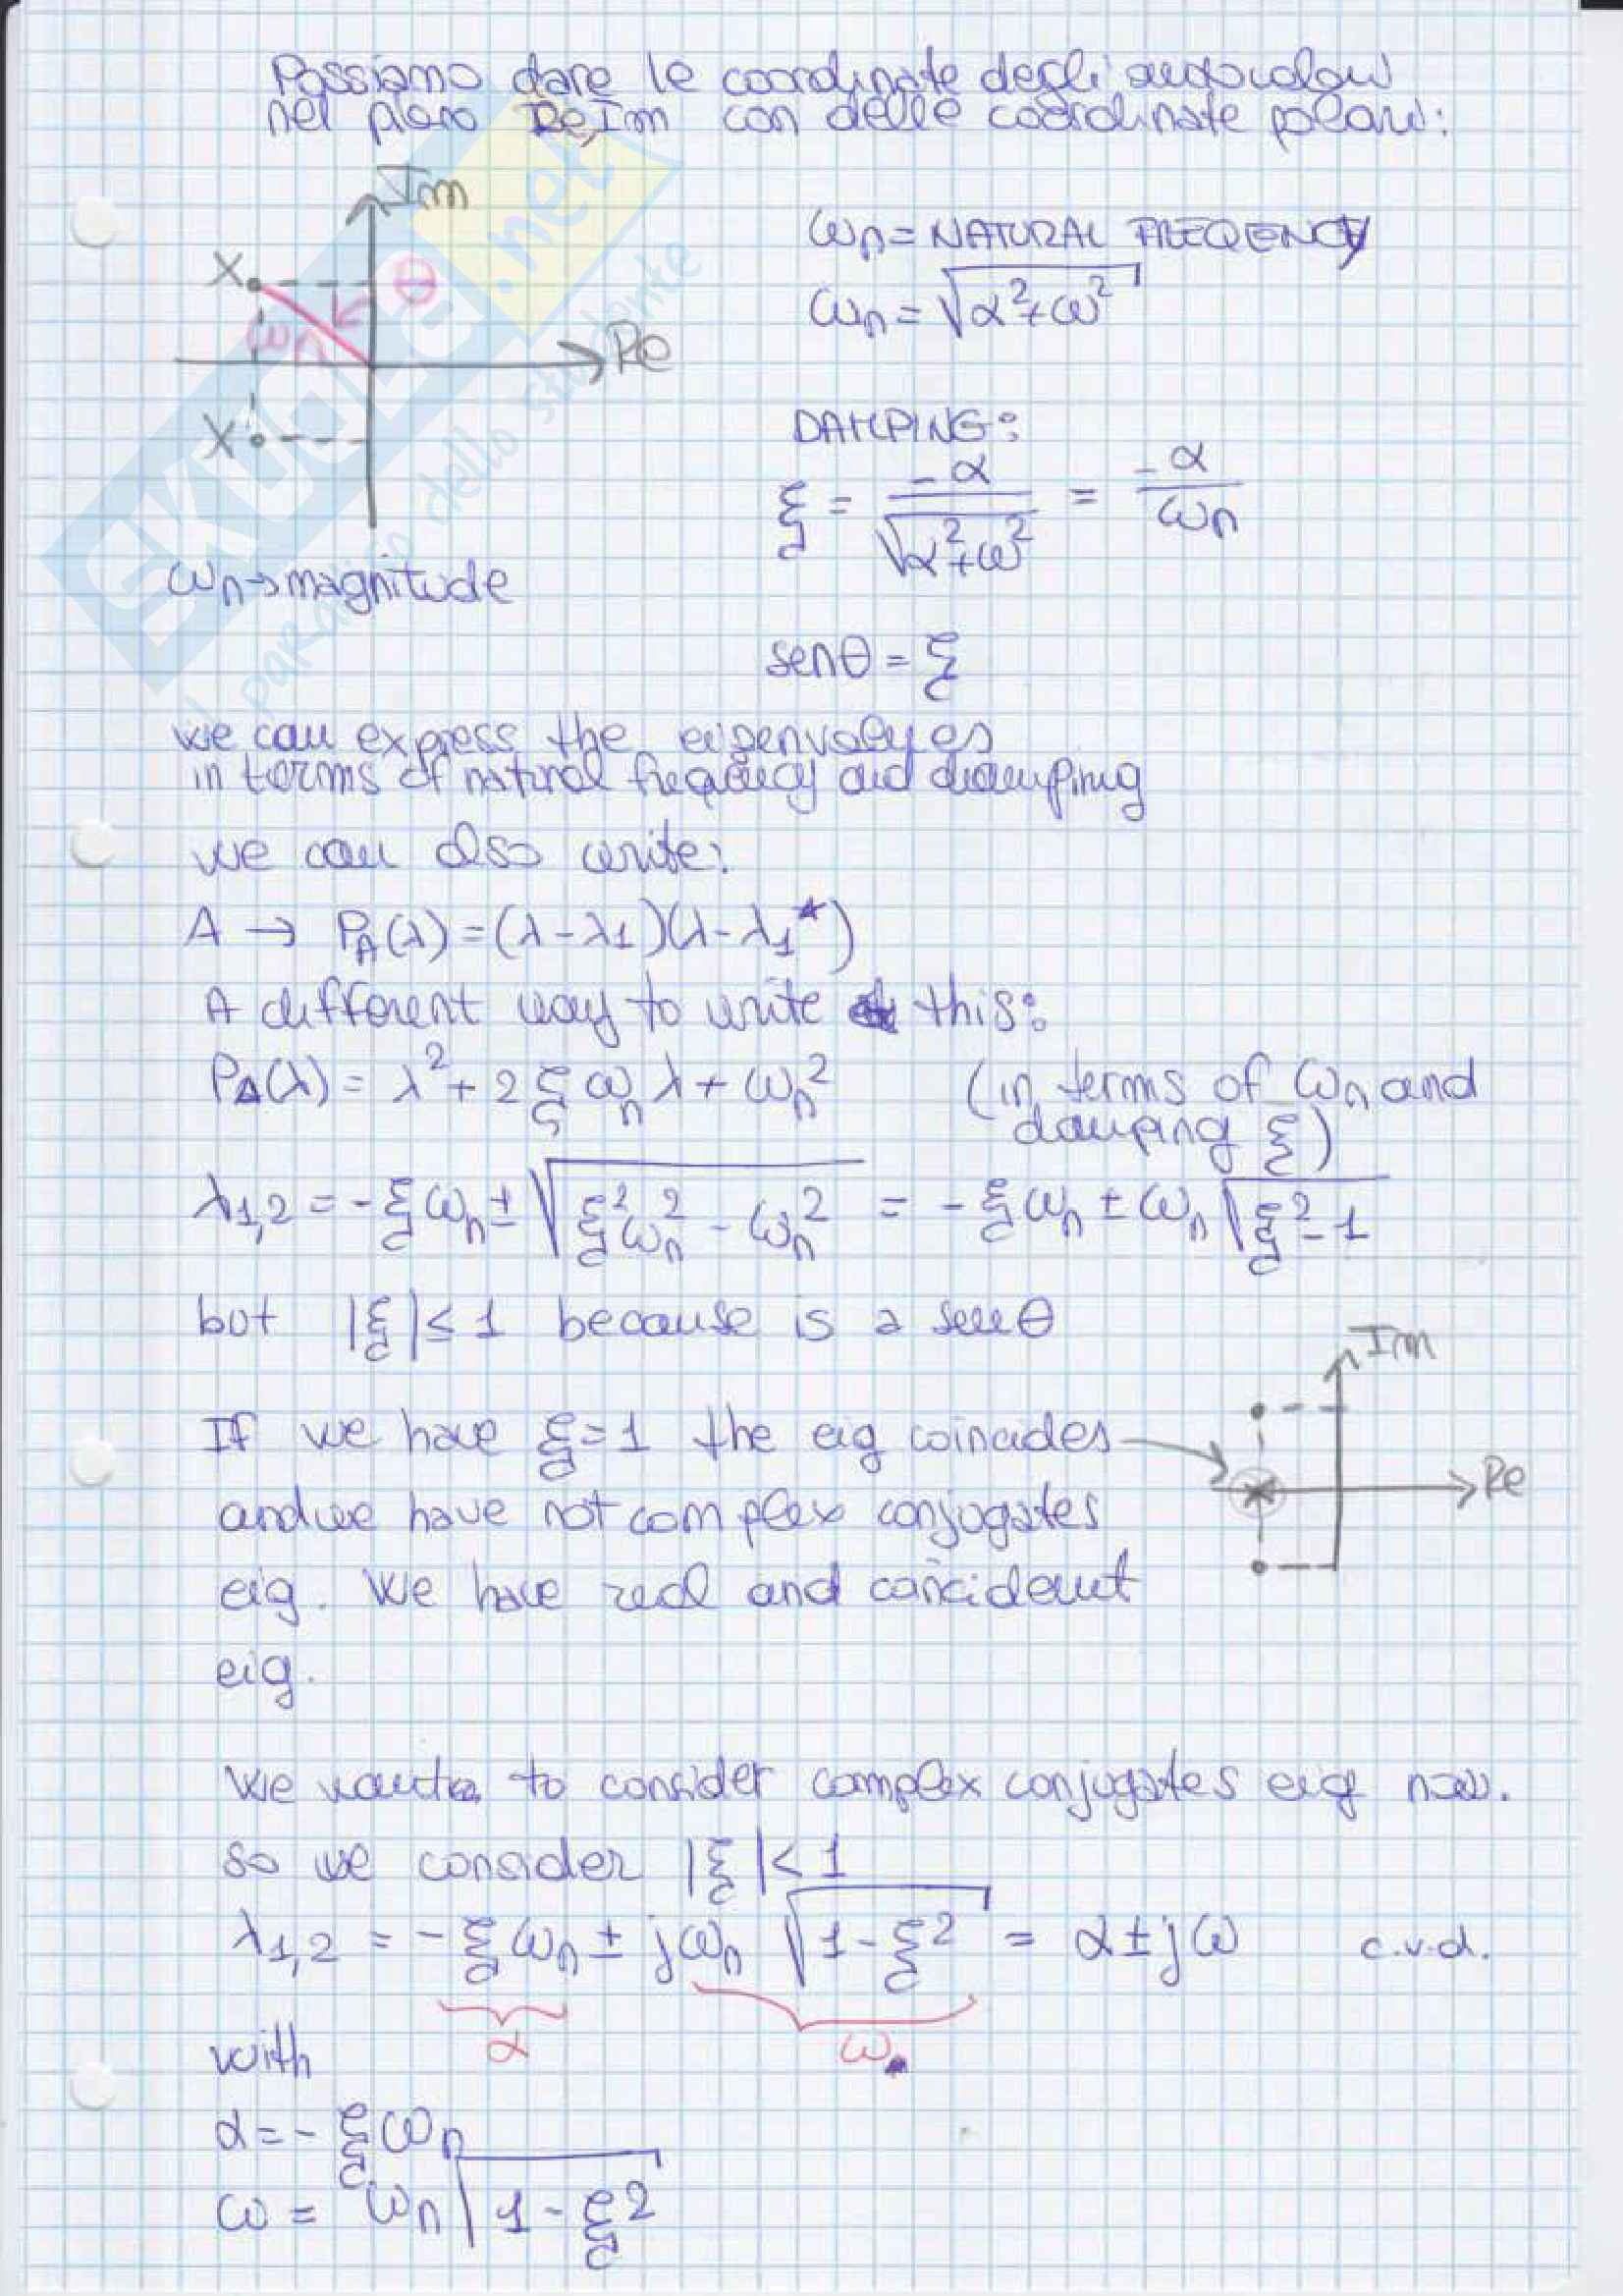 Possiamo dare le coordinate degli autovalori
nel piano Re,Im con delle coordinate polari:
Im
X
θ
ωn
Re
X
ωn→magnitude
ωn = NATURAL FREQENCY
ωn = √(α²+ω²)
DAMPING:
ξ = -α/√(α²+ω²) = -α/ωn
senθ = ξ
we can express the eigenvalyes
in terms of natural frequency and damping
we can also write:
A → PA(λ) = (λ-λ1)(λ-λ1*)
A different way to write this:
PA(λ) = λ² + 2ξωnλ + ωn² (in terms of ωn and
damping ξ)
λ1,2 = -ξωn ± √(ξ²ωn² - ωn²) = -ξωn ± ωn√(ξ²-1)
but |ξ| ≤ 1 because is a senθ
Im
If we have ξ=1 the eig coincides
Re
and we have not complex conjugates
eig. We have real and coincident
eig.
We want to consider complex conjugates eig now.
so we consider |ξ|<1
λ1,2 = -ξωn ± jωn √(1-ξ²) = α±jω c.v.d.
α
ω
with
α = -ξωn
ω = ωn√(1-ξ²)
SKUOLA.net
il paradiso dello studente